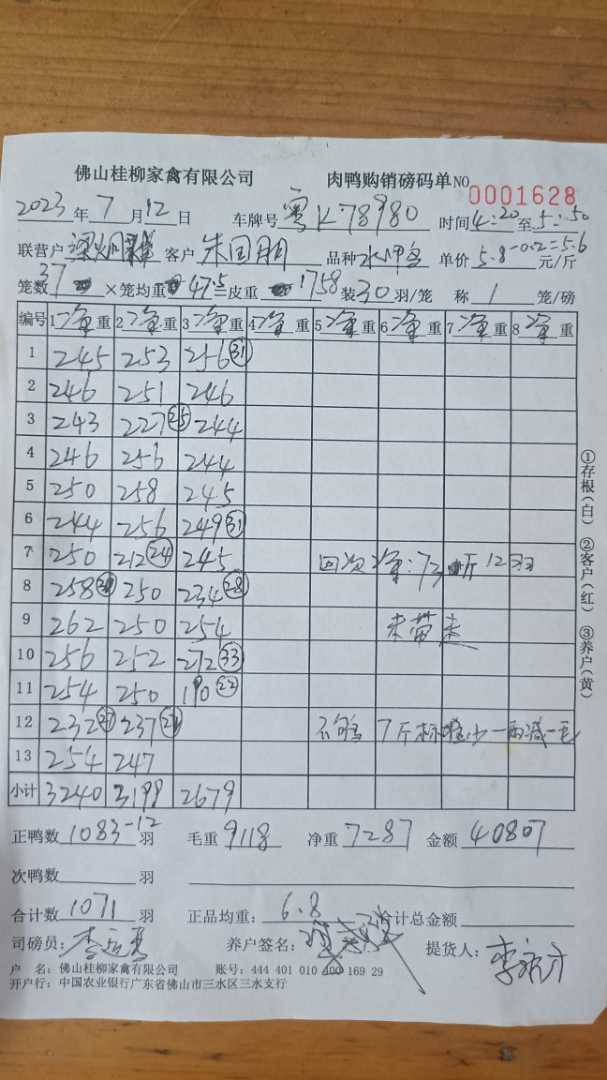 佛山桂柳家禽有限公司 肉鸭购销磅码单 NO 0001628
2023年7月12日 车牌号 粤K78980 时间4:20至5:50
联营户 客户 朱国朋 品种 水鸭 单价 5.8-0.2=5.6 元/斤
笼数 37 ×笼均重 47.5 =皮重 1758 装30羽/笼 称 1 笼/磅
编号 1净重 2净重 3净重 4净重 5净重 6净重 7净重 8净重
1 245 253 256(31)
2 246 251 246
3 243 227(25) 244
4 246 256 244
5 250 258 245
6 244 256 249(31)
7 250 212(24) 245 回次净重:73斤12羽
8 258 250 234(28)
9 262 250 254 未带走
10 256 252 272(33)
11 254 250 190(22)
12 232 237 不够7斤标准少一两减一毛
13 254 247
小计 3240 3199 2679
正鸭数 1083-12 羽 毛重 9118 净重 7287 金额 40807
次鸭数 羽
合计数 1071 羽 正品均重: 6.8 合计总金额
司磅员: 养户签名: 提货人:
户 名: 佛山桂柳家禽有限公司 账号: 444 401 010 400 169 29
开户行: 中国农业银行广东省佛山市三水区三水支行
①存根(白) ②客户(红) ③养户(黄)